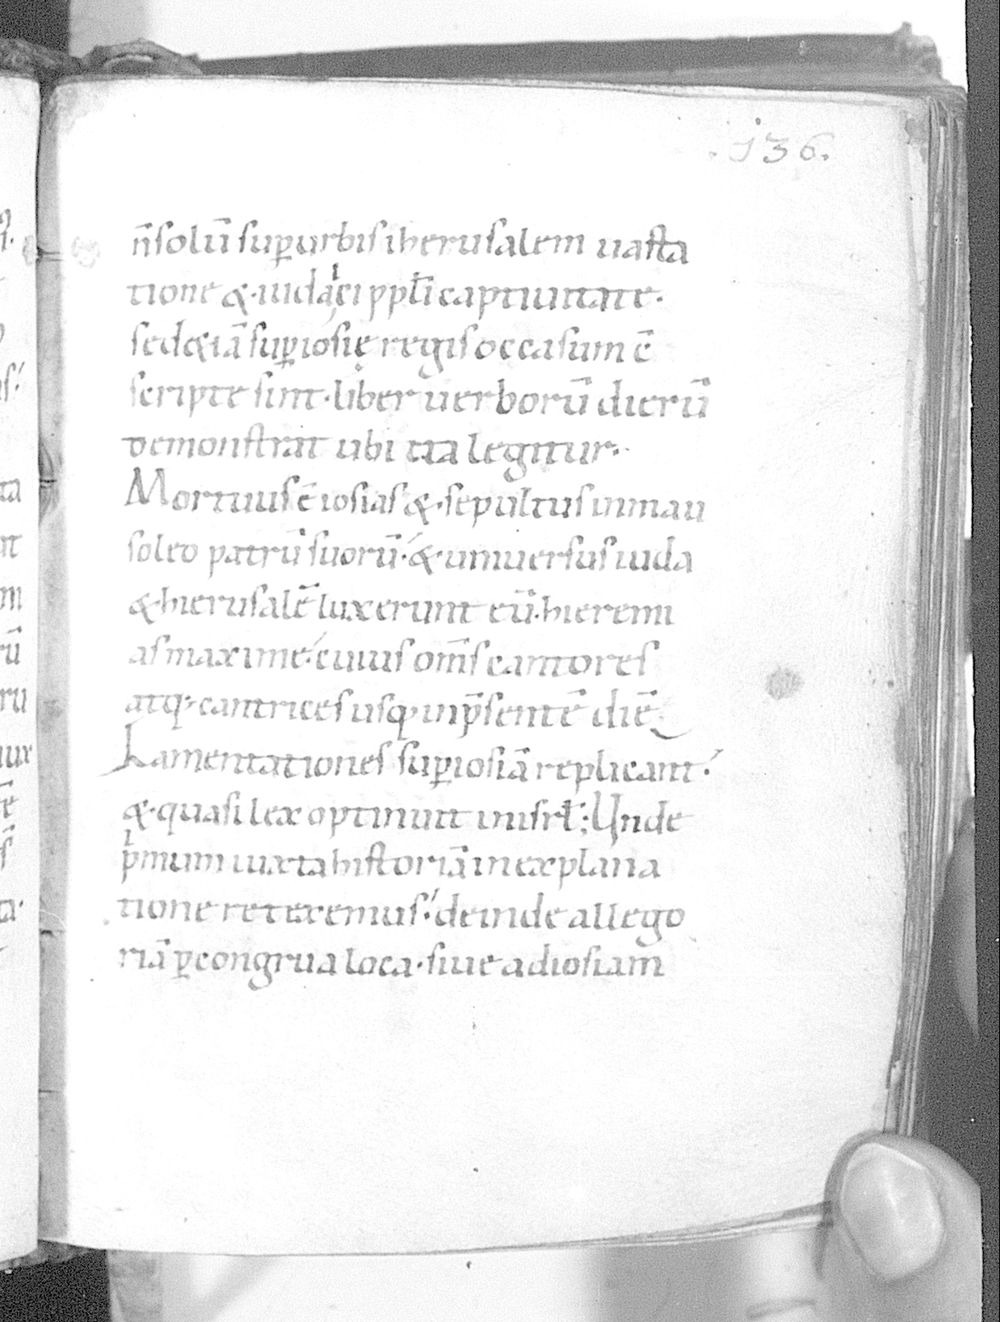 .136.
n̄ solū sup̱ urbis iherusalem uasta
tione &. iudaici ppl̄i captiuitate.
sed & iā sup̱ iosię regis occasum ē
scripte sint. liber uerborū dierū
demonstrat ubi ita legitur.
Mortuus ē iosias &. sepultus in mau
soleo patrū suorū. &. uniuersus iuda
& hierusalē luxerunt eū. hieremi
as maxime. cuius om̄s cantores
atq; cantrices usq; in p̄sentē diē
Lamentationes sup̱ iosiā replicant.
&. quasi lex optinuit in isrł; Unde
p̍mum iuxta historiā in explana
tione retexemus. deinde allego
riā p̱ congrua loca. siue ad iosiam